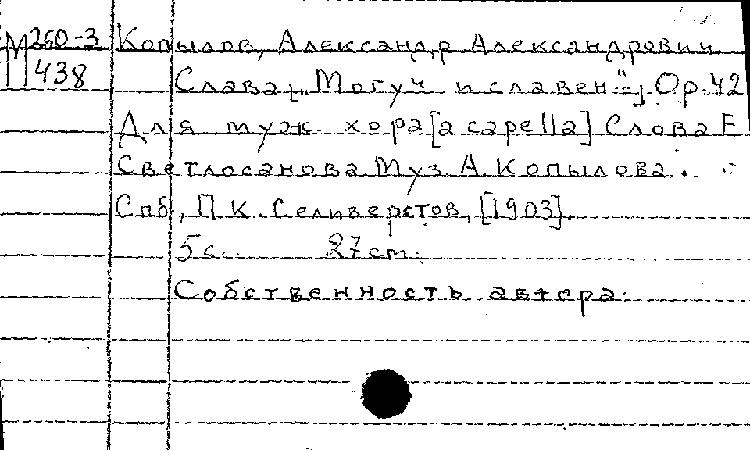 М 260-3 Копылов, Александр Александрович
438 Слава [„Могуч и славен"=] Ор. 42
Для муж. хора [a capella] Слова Е
Светлосанова Муз. А. Копылова.
Спб, П. К. Селиверстов, [1903].
5 с. 27 cm.
Собственность автора.